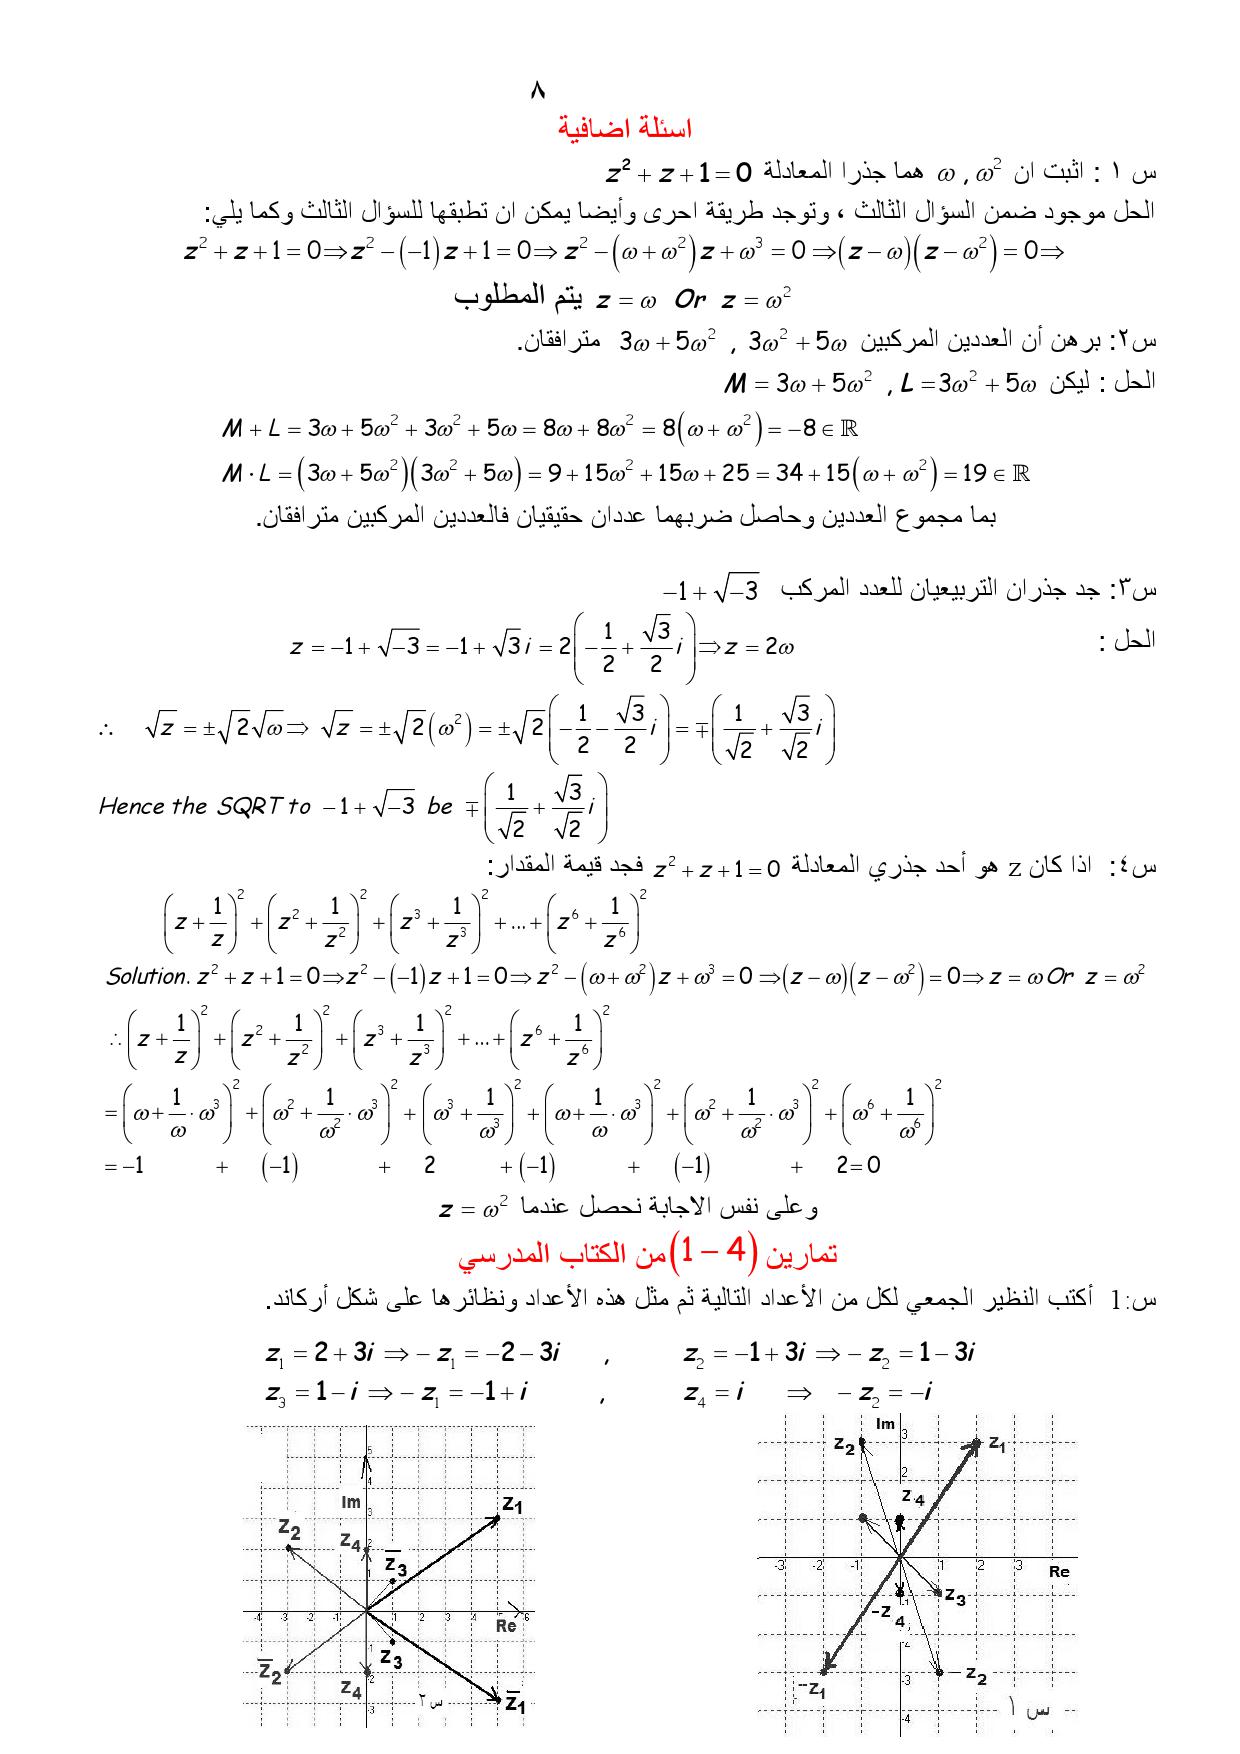 ٨
اسئلة اضافية
س ١ : اثبت ان ω , ω² هما جذرا المعادلة z² + z + 1 = 0
الحل موجود ضمن السؤال الثالث ، وتوجد طريقة احرى وأيضا يمكن ان تطبقها للسؤال الثالث وكما يلي:
z² + z + 1 = 0 ⇒ z² − (−1)z + 1 = 0 ⇒ z² − (ω + ω²)z + ω³ = 0 ⇒ (z − ω)(z − ω²) = 0 ⇒
z = ω Or z = ω² يتم المطلوب
س٢: برهن أن العددين المركبين 3ω + 5ω² , 3ω² + 5ω مترافقان.
الحل : ليكن M = 3ω + 5ω² , L = 3ω² + 5ω
M + L = 3ω + 5ω² + 3ω² + 5ω = 8ω + 8ω² = 8(ω + ω²) = −8 ∈ ℝ
M · L = (3ω + 5ω²)(3ω² + 5ω) = 9 + 15ω² + 15ω + 25 = 34 + 15(ω + ω²) = 19 ∈ ℝ
بما مجموع العددين وحاصل ضربهما عددان حقيقيان فالعددين المركبين مترافقان.
س٣: جد جذران التربيعيان للعدد المركب −1 + √−3
الحل : z = −1 + √−3 = −1 + √3 i = 2(−1/2 + √3/2 i) ⇒ z = 2ω
∴ √z = ±√2√ω ⇒ √z = ±√2(ω²) = ±√2(−1/2 − √3/2 i) = ∓(1/√2 + √3/√2 i)
Hence the SQRT to −1 + √−3 be ∓(1/√2 + √3/√2 i)
س٤: اذا كان z هو أحد جذري المعادلة z² + z + 1 = 0 فجد قيمة المقدار:
(z + 1/z)² + (z² + 1/z²)² + (z³ + 1/z³)² + ... + (z⁶ + 1/z⁶)²
Solution. z² + z + 1 = 0 ⇒ z² − (−1)z + 1 = 0 ⇒ z² − (ω + ω²)z + ω³ = 0 ⇒ (z − ω)(z − ω²) = 0 ⇒ z = ω Or z = ω²
∴ (z + 1/z)² + (z² + 1/z²)² + (z³ + 1/z³)² + ... + (z⁶ + 1/z⁶)²
= (ω + 1/ω · ω³)² + (ω² + 1/ω² · ω³)² + (ω³ + 1/ω³)² + (ω + 1/ω · ω³)² + (ω² + 1/ω² · ω³)² + (ω⁶ + 1/ω⁶)²
= −1 + (−1) + 2 + (−1) + (−1) + 2 = 0
وعلى نفس الاجابة نحصل عندما z = ω²
تمارين (1 − 4) من الكتاب المدرسي
س:1 أكتب النظير الجمعي لكل من الأعداد التالية ثم مثل هذه الأعداد ونظائرها على شكل أركاند.
z₁ = 2 + 3i ⇒ − z₁ = −2 − 3i , z₂ = −1 + 3i ⇒ − z₂ = 1 − 3i
z₃ = 1 − i ⇒ − z₁ = −1 + i , z₄ = i ⇒ − z₂ = −i
5
4
Im
3
z₁
z₂
z₄
z̅₃
1
-4 -3 -2 -1 1 2 3 4 5 6
Re
-1
z₃
z̅₂
z₄
س٢
z̅₁
-3
Im
3
z₂
z₁
2
z.4
-3 -2 -1 1 2 3
Re
-1
z₃
-z 4
z₂
-3
-z₁
س ١
-4